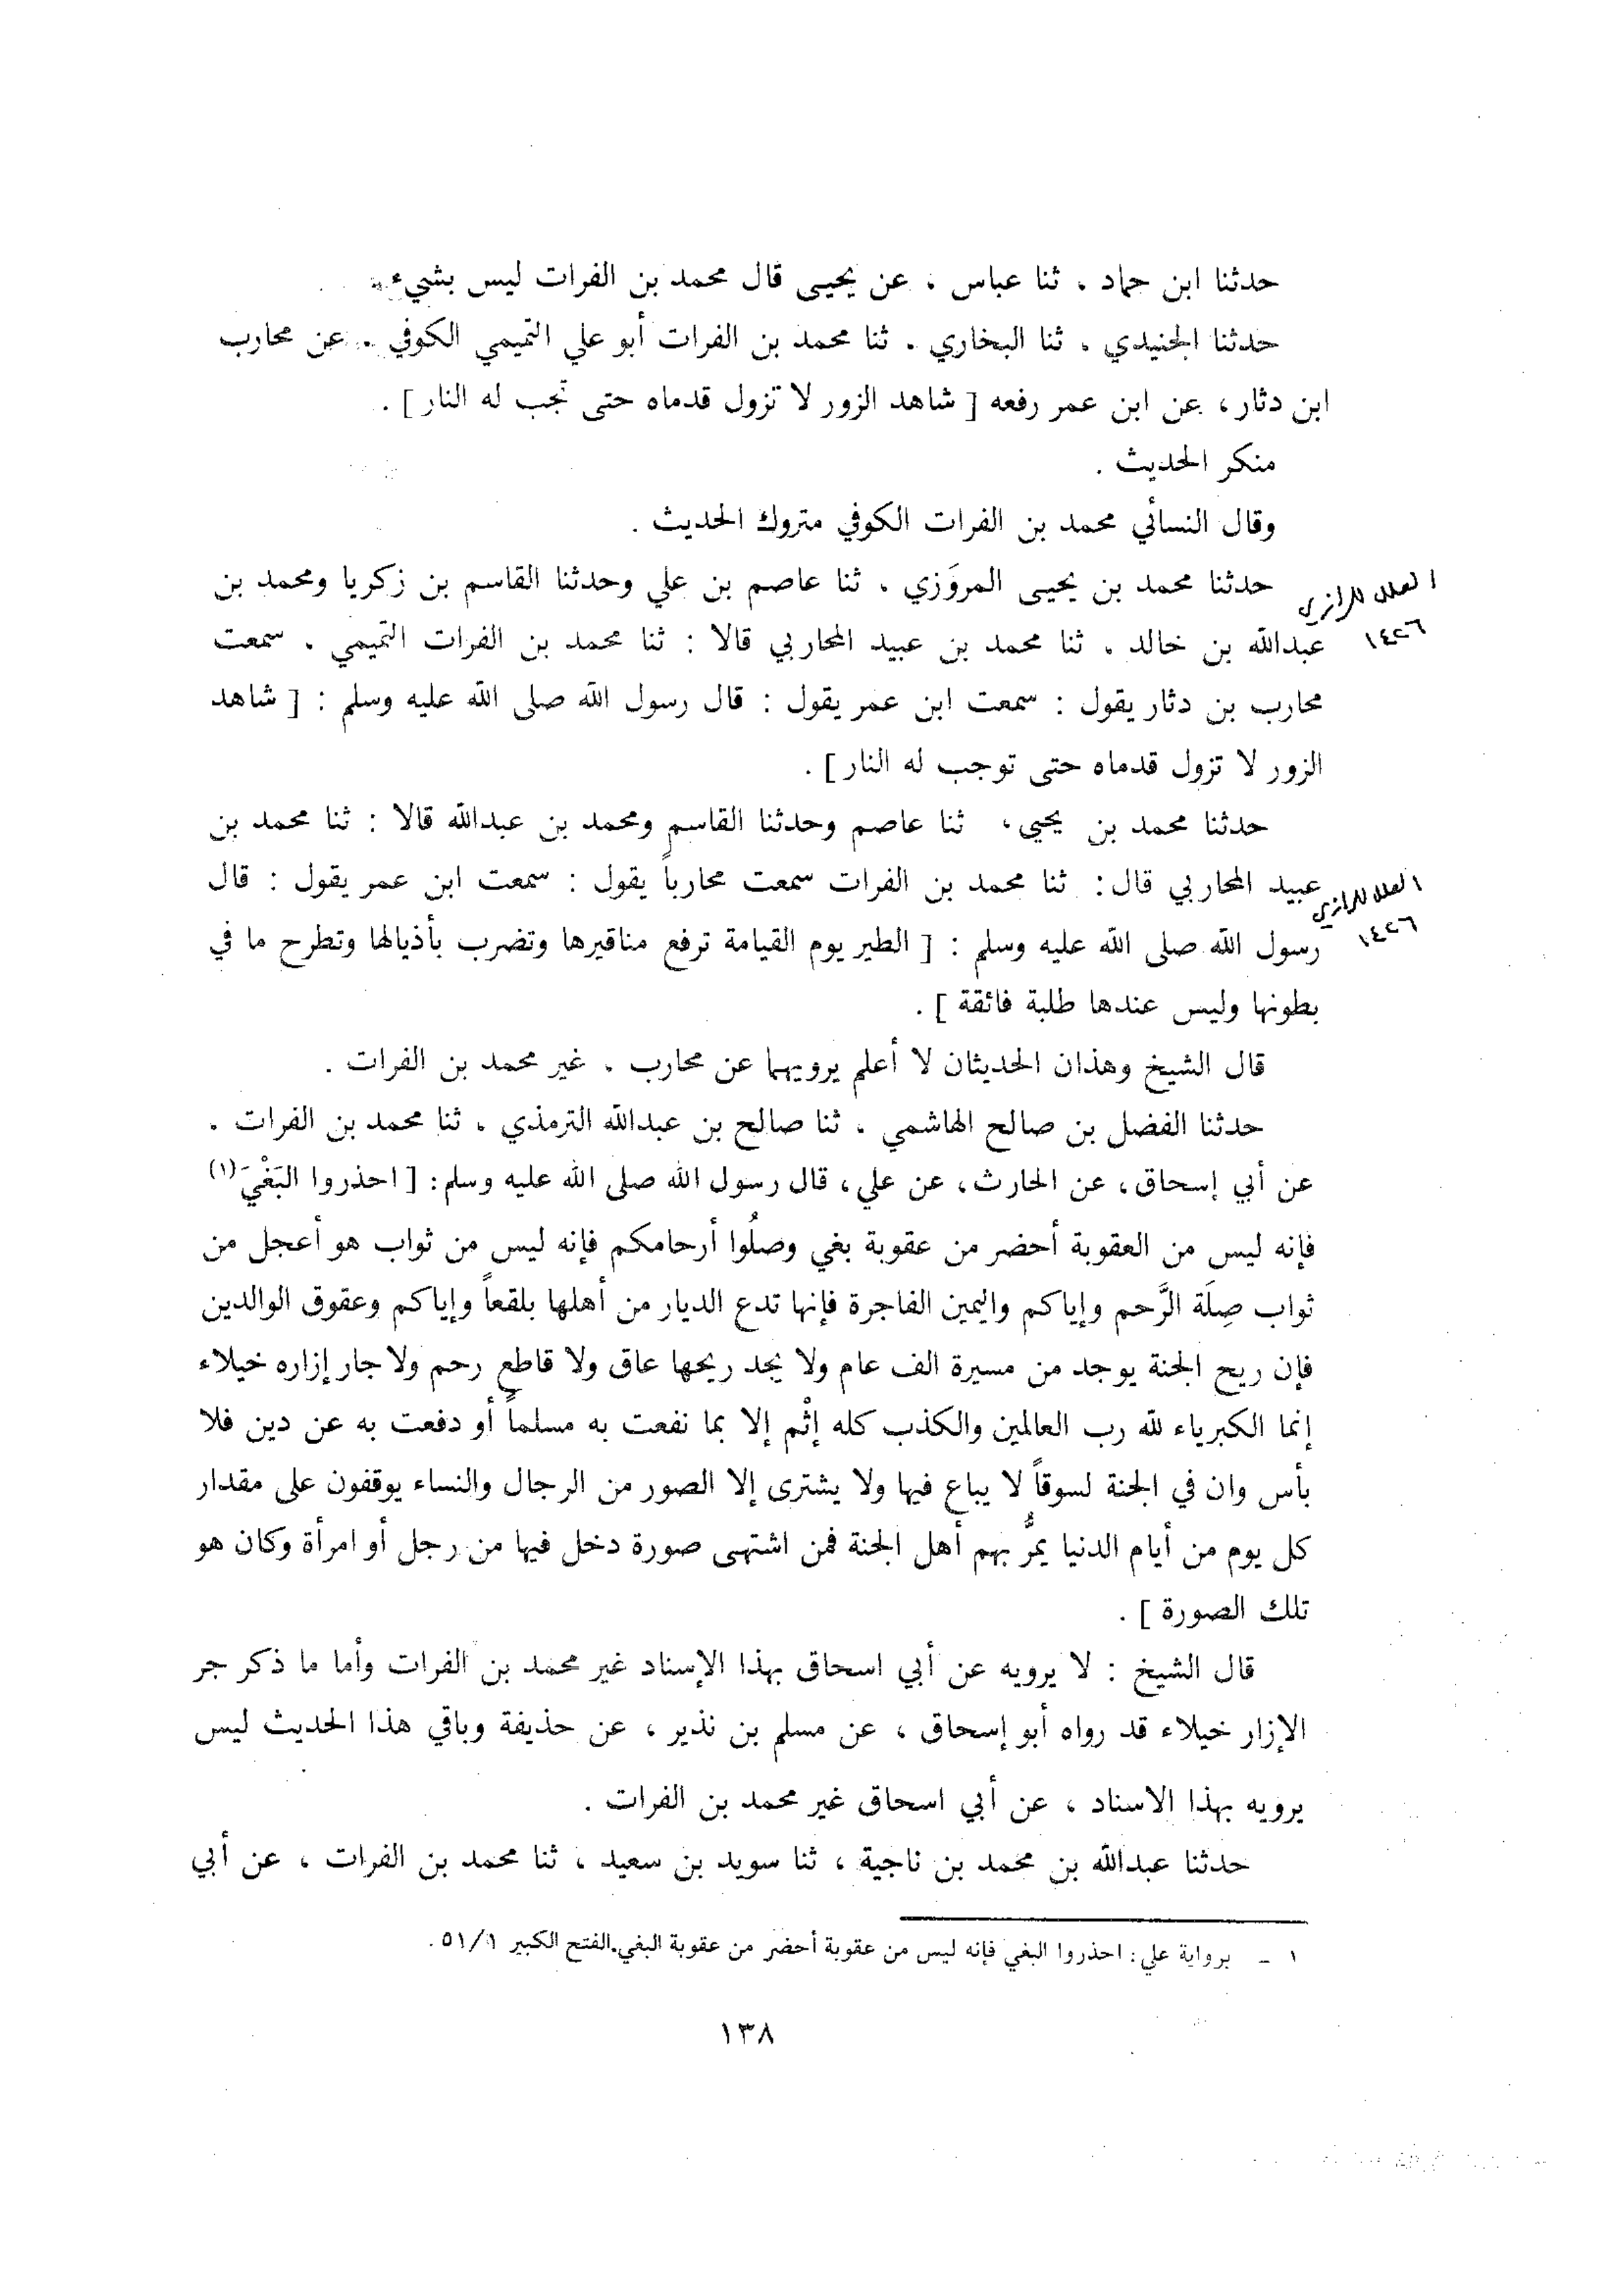 حدثنا ابن حماد ، ثنا عباس ، عن يحيى قال محمد بن الفرات ليس بشيء .
حدثنا الجنيدي ، ثنا البخاري ، ثنا محمد بن الفرات أبو علي التميمي الكوفي ، عن محارب
ابن دثار ، عن ابن عمر رفعه [ شاهد الزور لا تزول قدماه حتى تجب له النار ] .
منكر الحديث .
وقال النسائي محمد بن الفرات الكوفي متروك الحديث .
حدثنا محمد بن يحيى المروَزي ، ثنا عاصم بن علي وحدثنا القاسم بن زكريا ومحمد بن
العلل للرازي
عبدالله بن خالد ، ثنا محمد بن عبيد المحاربي قالا : ثنا محمد بن الفرات التميمي ، سمعت
١٤٢٦
محارب بن دثار يقول : سمعت ابن عمر يقول : قال رسول الله صلى الله عليه وسلم : [ شاهد
الزور لا تزول قدماه حتى توجب له النار ] .
حدثنا محمد بن يحيي ، ثنا عاصم وحدثنا القاسم ومحمد بن عبدالله قالا : ثنا محمد بن
عبيد المحاربي قال : ثنا محمد بن الفرات سمعت محارباً يقول : سمعت ابن عمر يقول : قال
العلل للرازي
رسول الله صلى الله عليه وسلم : [ الطير يوم القيامة ترفع مناقيرها وتضرب بأذيالها وتطرح ما في
١٤٢٦
بطونها وليس عندها طلبة فائقة ] .
قال الشيخ وهذان الحديثان لا أعلم يرويهما عن محارب ، غير محمد بن الفرات .
حدثنا الفضل بن صالح الهاشمي ، ثنا صالح بن عبدالله الترمذي ، ثنا محمد بن الفرات ،
عن أبي إسحاق ، عن الحارث ، عن علي ، قال رسول الله صلى الله عليه وسلم : [ احذروا البَغْيَ (١)
فإنه ليس من العقوبة أحضر من عقوبة بغي وصلُوا أرحامكم فإنه ليس من ثواب هو أعجل من
ثواب صِلَة الرَّحم وإياكم واليمين الفاجرة فإنها تدع الديار من أهلها بلقعاً وإياكم وعقوق الوالدين
فإن ريح الجنة يوجد من مسيرة الف عام ولا يجد ريحها عاق ولا قاطع رحم ولا جار إزاره خيلاء
إنما الكبرياء لله رب العالمين والكذب كله إثْم إلا بما نفعت به مسلماً أو دفعت به عن دين فلا
بأس وان في الجنة لسوقاً لا يباع فيها ولا يشترى إلا الصور من الرجال والنساء يوقفون على مقدار
كل يوم من أيام الدنيا يمرُّ بهم أهل الجنة فمن اشتهى صورة دخل فيها من رجل أو امرأة وكان هو
تلك الصورة ] .
قال الشيخ : لا يرويه عن أبي اسحاق بهذا الإسناد غير محمد بن الفرات وأما ما ذكر جر
الإزار خيلاء قد رواه أبو إسحاق ، عن مسلم بن نذير ، عن حذيفة وباقي هذا الحديث ليس
يرويه بهذا الاسناد ، عن أبي اسحاق غير محمد بن الفرات .
حدثنا عبدالله بن محمد بن ناجية ، ثنا سويد بن سعيد ، ثنا محمد بن الفرات ، عن أبي
١ ـ برواية علي : احذروا البغي فإنه ليس من عقوبة أحضر من عقوبة البغي . الفتح الكبير ٥١/١ .
١٣٨